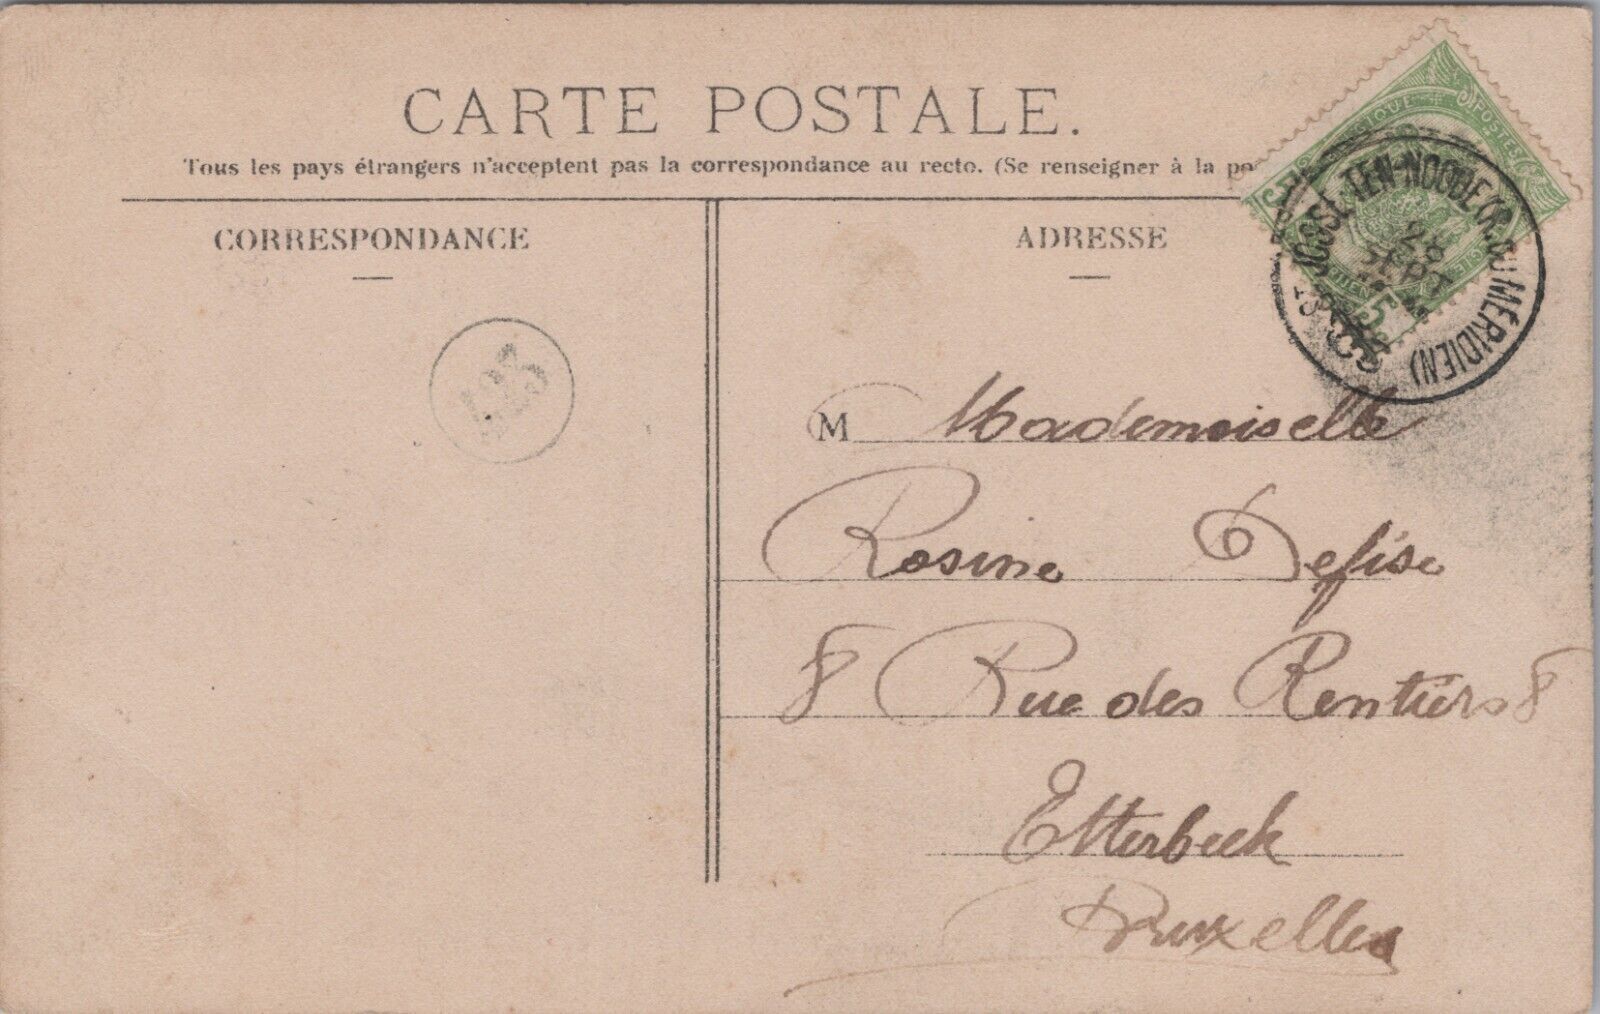 CARTE POSTALE.
Tous les pays étrangers n'acceptent pas la correspondance au recto. (Se renseigner à la
CORRESPONDANCE
ADRESSE
POSTES
5
5
ST-JOSSE-TEN-NOODE (R. DU MÉRIDIEN)
28
SEPT
M Mademoiselle
Rosine Defise
8 Rue des Rentiers 8
Etterbeek
Bruxelles